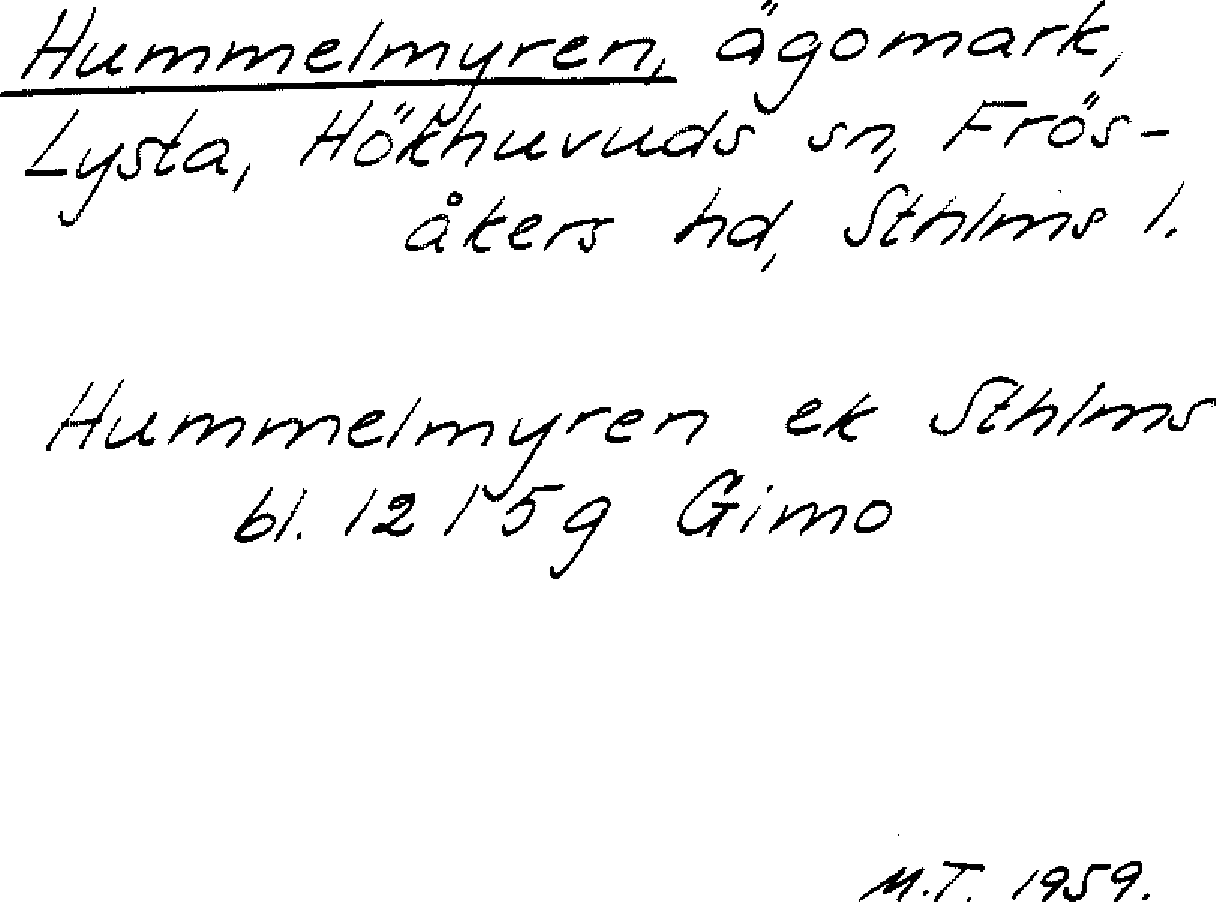 Hummelmyren, ägomark,
Lysta, Hökhuvuds sn, Frös-
åkers hd, Sthlms l.
Hummelmyren ek Sthlms
bl. 12 I 5g Gimo
M.T. 1959.